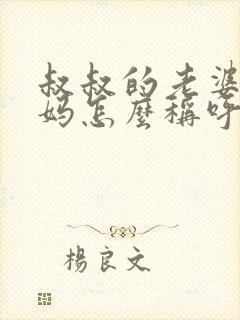 叔叔的老婆
妈怎麼稱呼
楊良文